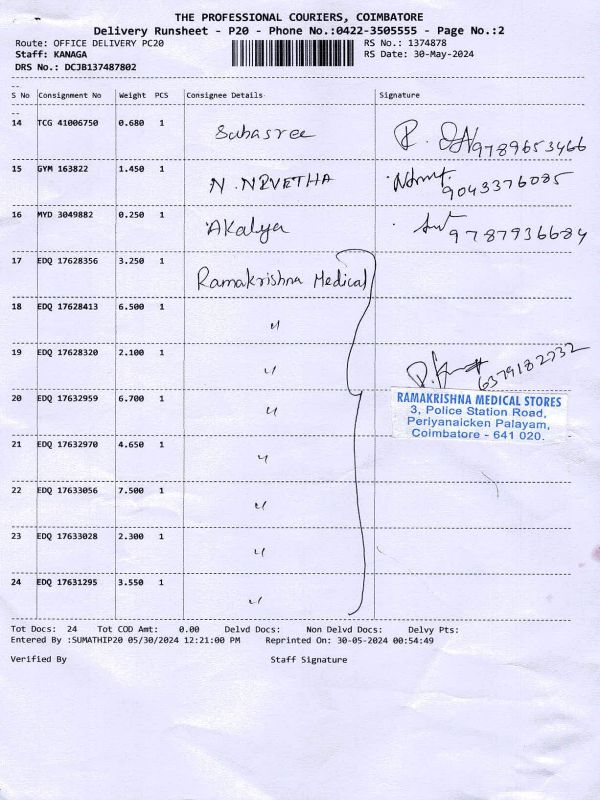 THE PROFESSIONAL COURIERS, COIMBATORE
Delivery Runsheet - P20 - Phone No.:0422-3505555 - Page No.:2
Route: OFFICE DELIVERY PC20 RS No.: 1374878
Staff: KANAGA RS Date: 30-May-2024
DRS No.: DCJB137487802
S No Consignment No Weight PCS Consignee Details Signature
14 TCG 41006750 0.680 1 Subasree 9789653466
15 GYM 163822 1.450 1 N.NIVETHA 9043376085
16 MYD 3049882 0.250 1 Akalya 9787936684
17 EDQ 17628356 3.250 1 Ramakrishna Medical
18 EDQ 17628413 6.500 1 "
19 EDQ 17628320 2.100 1 " 6379182732
20 EDQ 17632959 6.700 1 "
RAMAKRISHNA MEDICAL STORES
3, Police Station Road,
Periyanaicken Palayam,
Coimbatore - 641 020.
21 EDQ 17632970 4.650 1 "
22 EDQ 17633056 7.500 1 "
23 EDQ 17633028 2.300 1 "
24 EDQ 17631295 3.550 1 "
Tot Docs: 24 Tot COD Amt: 0.00 Delvd Docs: Non Delvd Docs: Delvy Pts:
Entered By :SUMATHIP20 05/30/2024 12:21:00 PM Reprinted On: 30-05-2024 00:54:49
Verified By Staff Signature